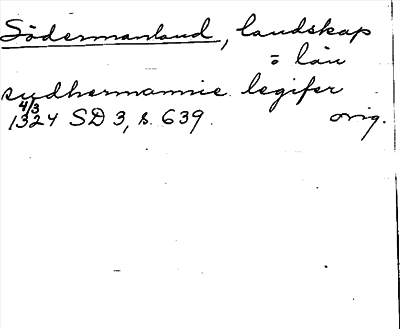 Södermanland, landskap
o län
sudhermannie legifer
4/3
1324 SD 3, s. 639. orig.